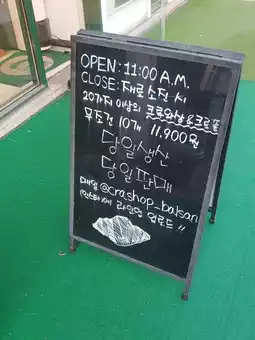 OPEN: 11:00 A.M.
CLOSE: 재료소진 시
20가지 이상의 크로와상&크로플
무조건 10개 11,900원
당일생산
당일판매
매일 @cro.shop_balsan
인스타에 라인업 업로드!!